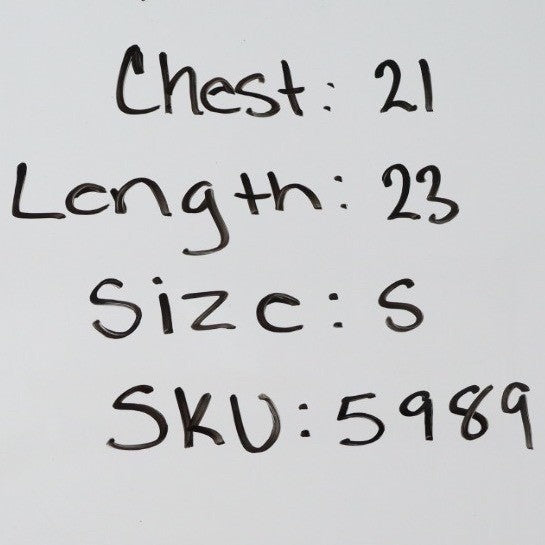 Chest: 21
Length: 23
Size: S
SKU: 5989